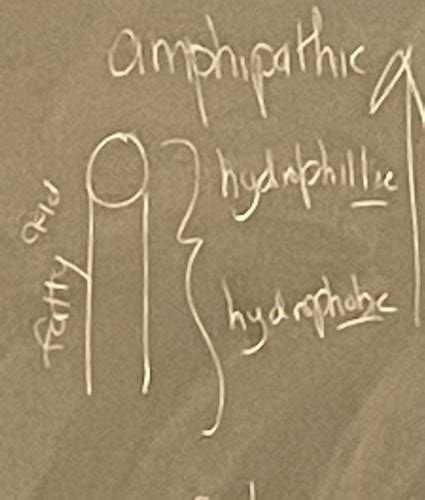 amphipathic
hydrophillic
hydrophobic
fatty acid